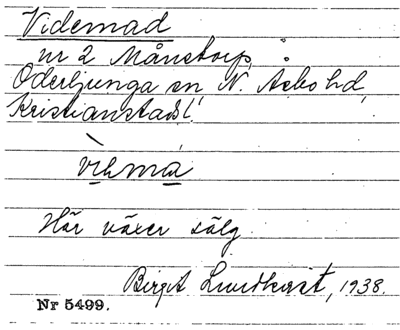 Videmad
nr 2 Månstorp,
Oderljunga sn N. Åsbo hd,
Kristianstads l.
vıḥmạ
Här växer sälg.
Birgit Lundkvist, 1938.
Nr 5499.